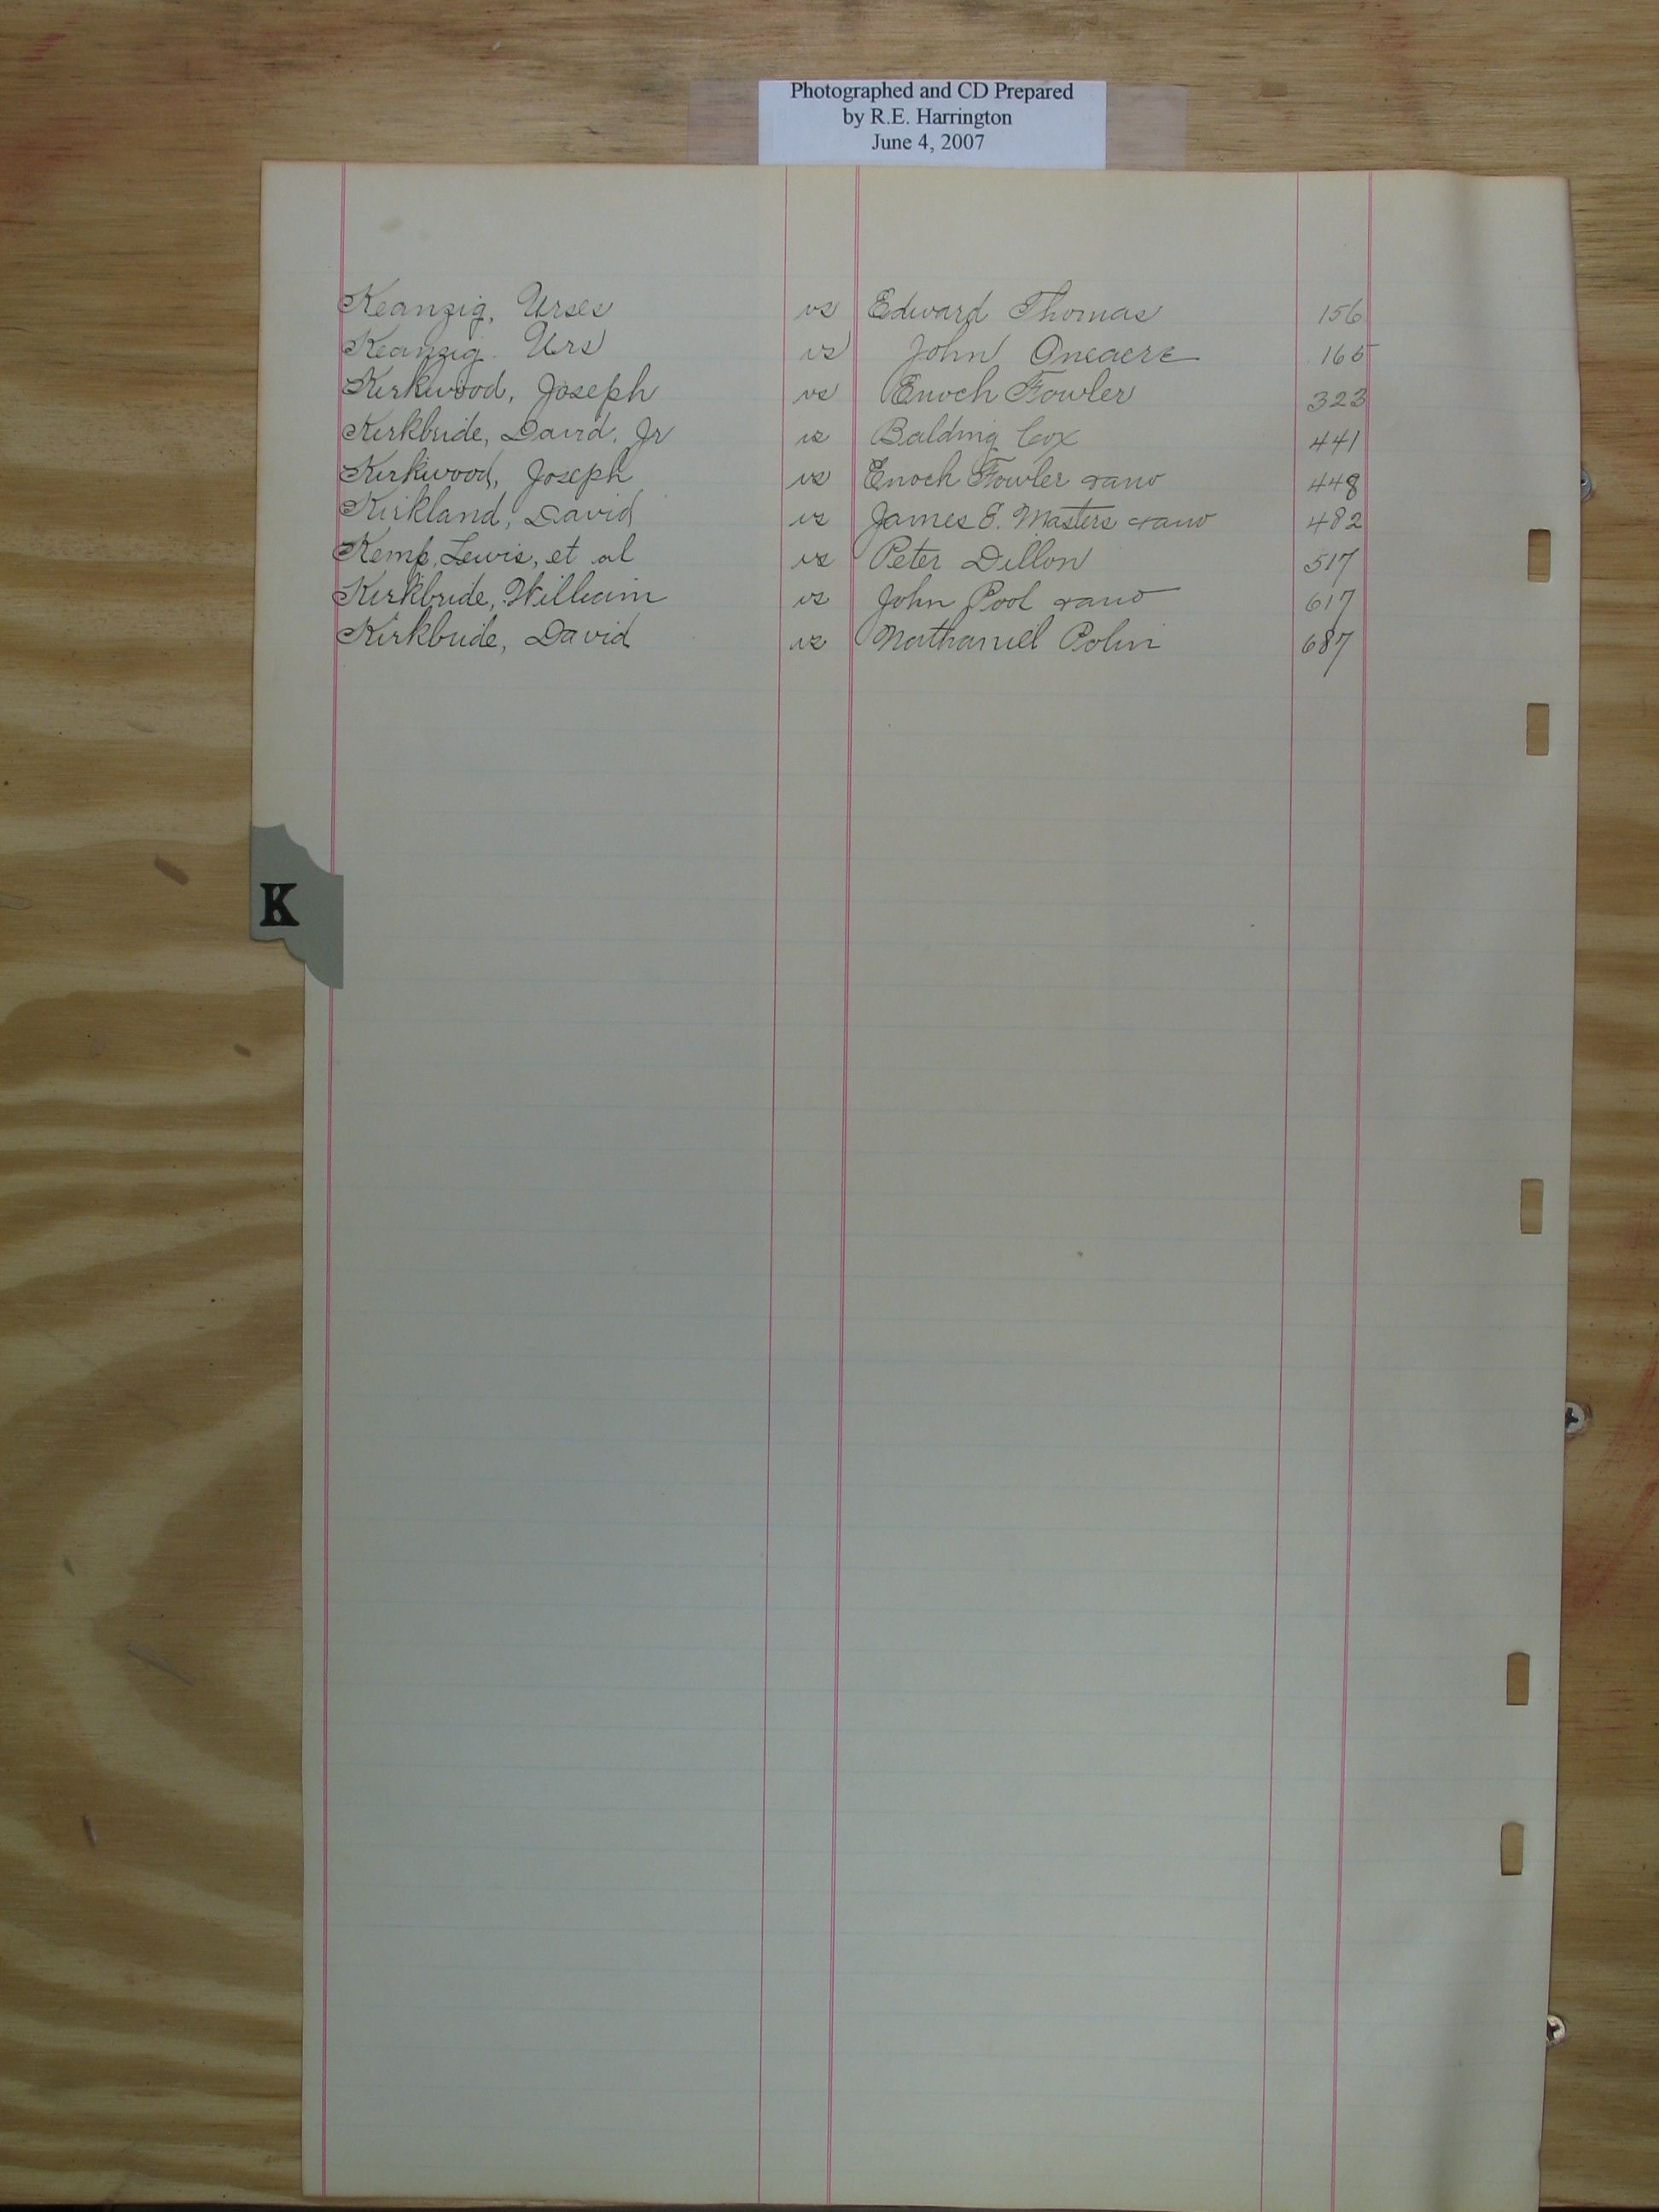 Photographed and CD Prepared
by R.E. Harrington
June 4, 2007
Keanzig, Urses vs Edward Thomas 156
Keanzig. Urs vs John Oneacre 165
Kirkwood, Joseph vs Enoch Fowler 323
Kirkbride, David, Jr vs Balding Cox 441
Kirkwood, Joseph vs Enoch Fowler & ano 448
Kirkland, David vs James E. Masters & ano 482
Kemp, Lewis, et al vs Peter Dillon 517
Kirkbride, William vs John Pool & ano 617
Kirkbride, David vs Nathaniel Polin 687
K